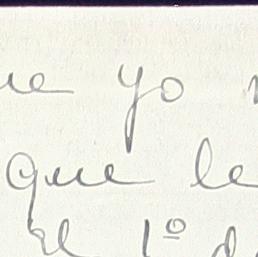 yo
que le
El 1º d